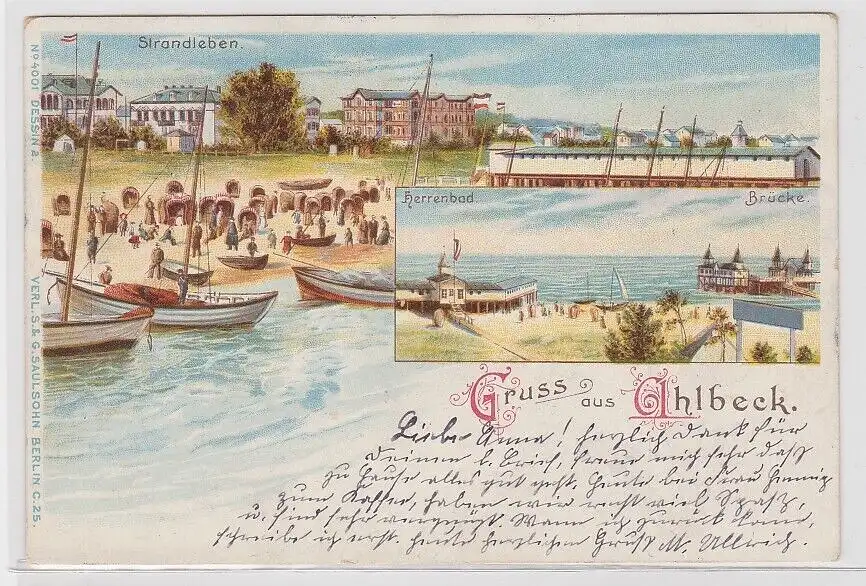 Strandleben.
Nº 4001 DESSIN 2.
VERL. S. & G. SAULSOHN BERLIN C. 25.
Herrenbad
Brücke.
Gruss aus Ahlbeck.
Liebe Anna! herzlich Dank für
Deinen l. Brief, freue mich sehr daß
zu Hause alles gut geht. Heute bei Frau Hennig
zum Kaffee, haben wir recht viel Spaß,
u. sind sehr vergnügt. Wann ich zurück komme,
schreibe ich erst. heute herzlichen Gruß M. Ullrich.